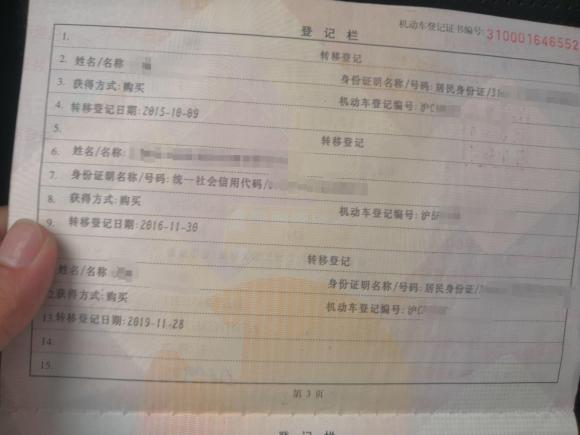 登记栏 机动车登记证书编号: 310001646552
1.
转移登记
2. 姓名/名称: 身份证明名称/号码: 居民身份证/31
3. 获得方式: 购买 机动车登记编号: 沪C
4. 转移登记日期: 2015-10-09
5. 转移登记
6. 姓名/名称:
7. 身份证明名称/号码: 统一社会信用代码/
8. 获得方式: 购买 机动车登记编号: 沪
9. 转移登记日期: 2016-11-30
转移登记
姓名/名称 身份证明名称/号码: 居民身份证/
2. 获得方式: 购买 机动车登记编号: 沪
13. 转移登记日期: 2019-11-28
14.
15.
第3页
登记栏